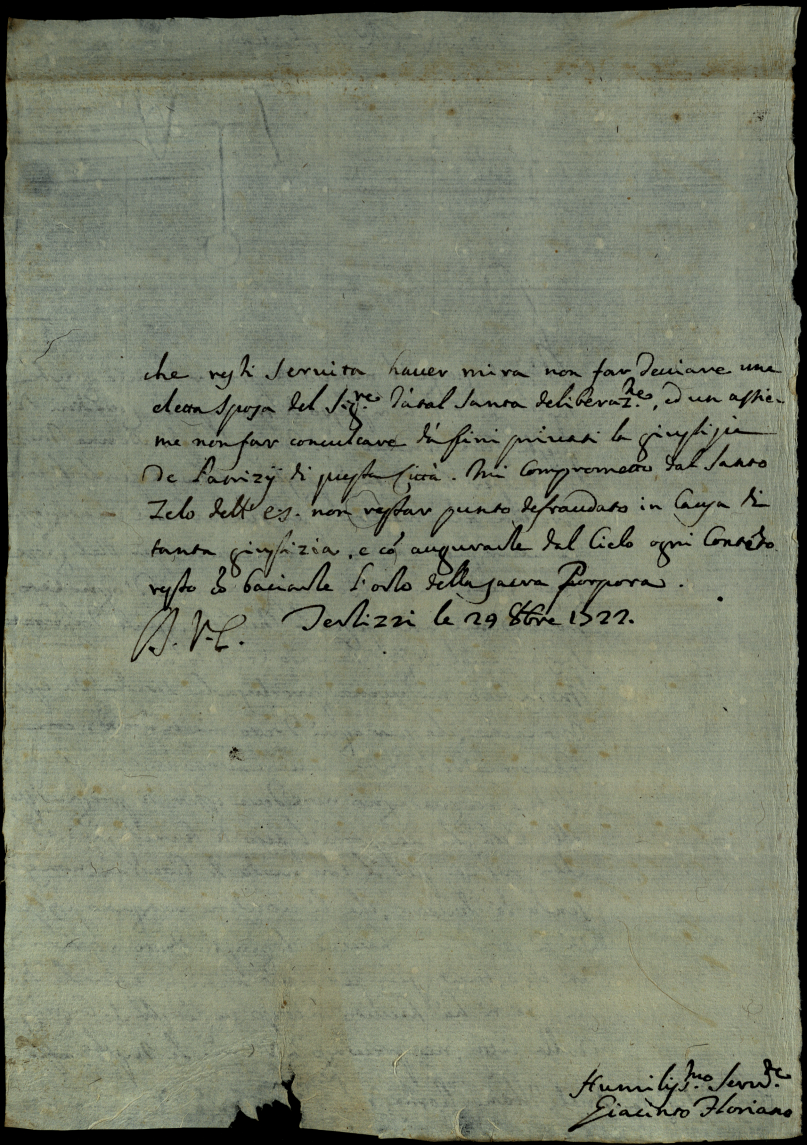 che resti servita haver mira non far deviare una
eletta Sposa del Sig.re da tal santa deliberaz.ne, ed un assie-
me non far conculcare da fini privati la giustizia
de Patrizÿ di questa Città. Mi comprometto dal santo
Zelo dell' es. non restar punto defraudato in Causa di
tanta giustizia, e cõ augurarle dal Cielo ogni Contẽto
resto cõ baciarle l'orlo della sacra Porpora.
D. V. E. Terlizzi le 29 8bre 1722.
Humiliss.mo Serv.re
Giacinto Floriano